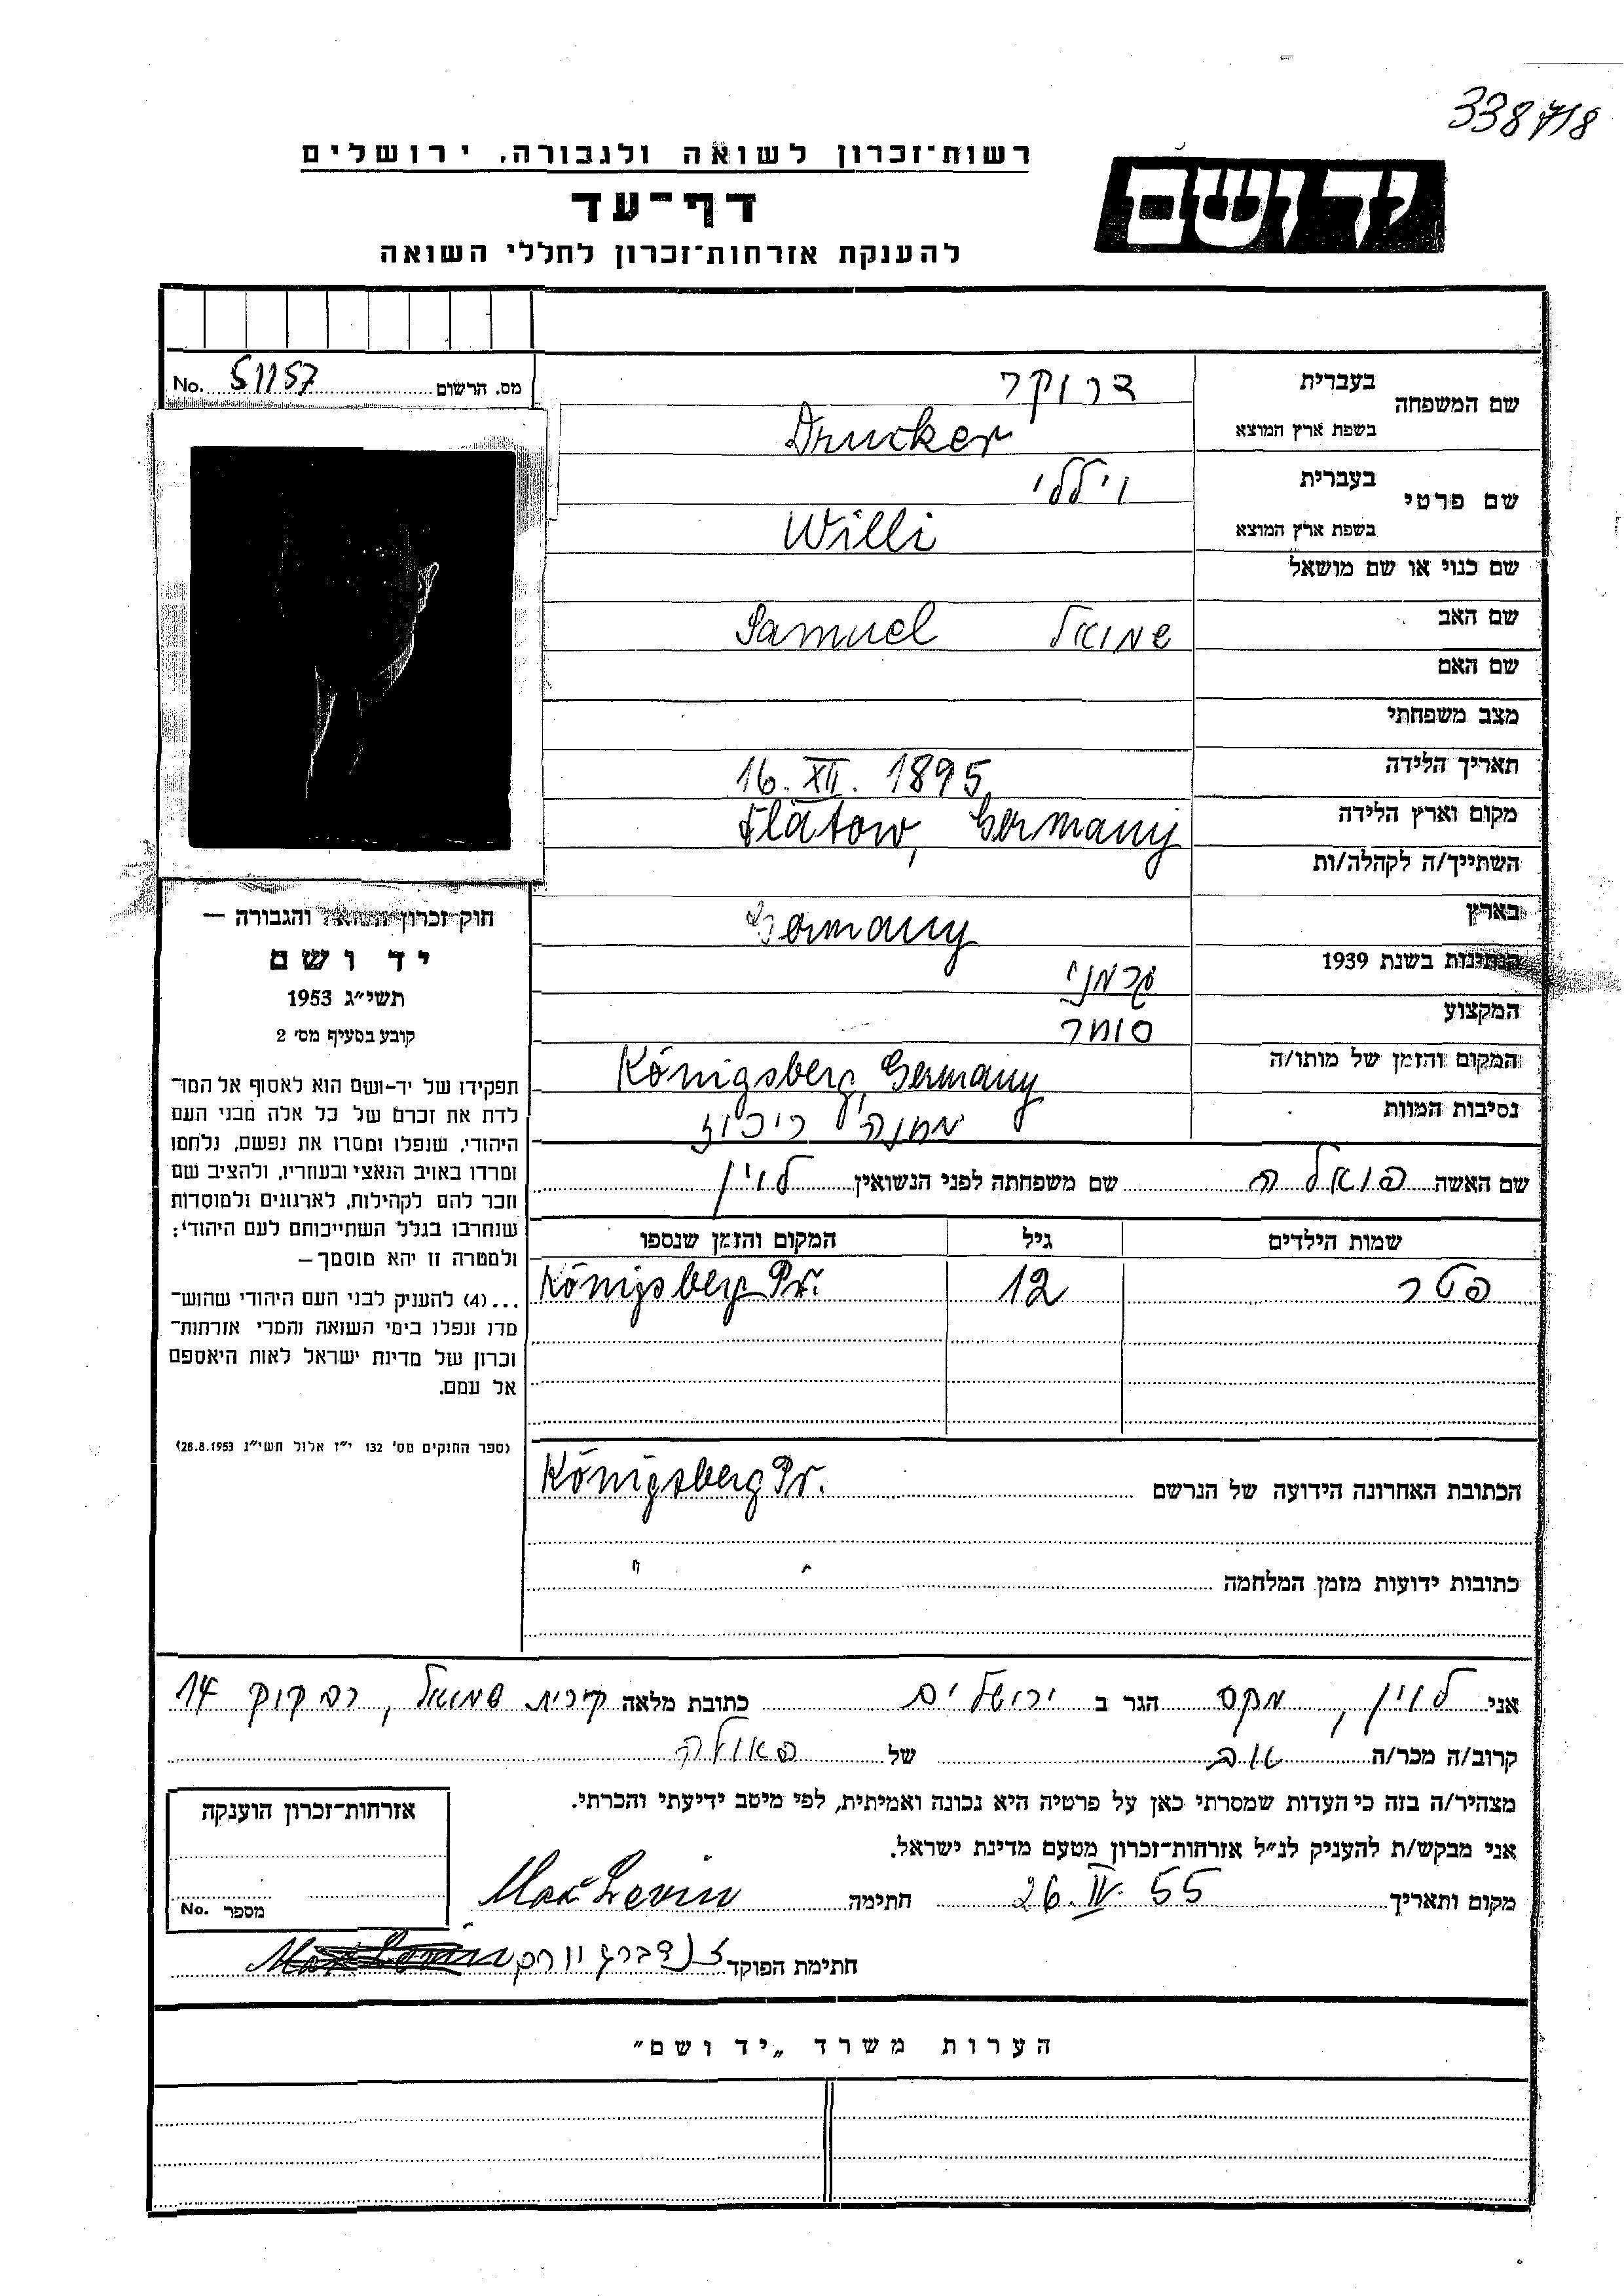 338718
יד ושם
רשות־זכרון לשואה ולגבורה, ירושלים
דף־עד
להענקת אזרחות־זכרון לחללי השואה
מס. הרשום 51157 No.
שם המשפחה בעברית דרוקר
בשפת ארץ המוצא Drucker
שם פרטי בעברית וילי
בשפת ארץ המוצא Willi
שם כנוי או שם מושאל
שם האב שמואל Samuel
שם האם
מצב משפחתי
תאריך הלידה 16. XII. 1895
מקום וארץ הלידה Flatow, Germany
השתייך/ה לקהלה/ות
בארץ Germany
הנתינות בשנת 1939 גרמני
המקצוע סוחר
המקום והזמן של מותו/ה Königsberg Germany
נסיבות המוות מחנה ריכוז
חוק זכרון השואה והגבורה —
יד ושם
תשי״ג 1953
קובע בסעיף מס׳ 2
תפקידו של יד-ושם הוא לאסוף אל המו־
לדת את זכרם של כל אלה מבני העם
היהודי, שנפלו ומסרו את נפשם, נלחמו
ומרדו באויב הנאצי ובעוזריו, ולהציב שם
וזכר להם לקהילות, לארגונים ולמוסדות
שנחרבו בגלל השתייכותם לעם היהודי;
ולמטרה זו יהא מוסמך —
...(4) להעניק לבני העם היהודי שהוש־
מדו ונפלו בימי השואה והמרי אזרחות־
זכרון של מדינת ישראל לאות היאספם
אל עמם.
(ספר החוקים מס׳ 132 י״ז אלול תשי״ג 28.8.1953)
שם האשה פואלה שם משפחתה לפני הנשואין לוין
שמות הילדים גיל המקום והזמן שנספו
פטר 12 Königsberg Pr.
הכתובת האחרונה הידועה של הנרשם Königsberg Pr.
כתובות ידועות מזמן המלחמה " "
אני לוין, מקס הגר ב ירושלים כתובת מלאה קירית שמואל, רב קוק 14
קרוב/ה מכר/ה של פאולה
מצהיר/ה בזה כי העדות שמסרתי כאן על פרטיה היא נכונה ואמיתית, לפי מיטב ידיעתי והכרתי.
אני מבקש/ת להעניק לנ״ל אזרחות־זכרון מטעם מדינת ישראל.
מקום ותאריך 26. IV. 55 חתימה Max Levin
חתימת הפוקד
אזרחות־זכרון הוענקה
מספר No.
הערות משרד „יד ושם״